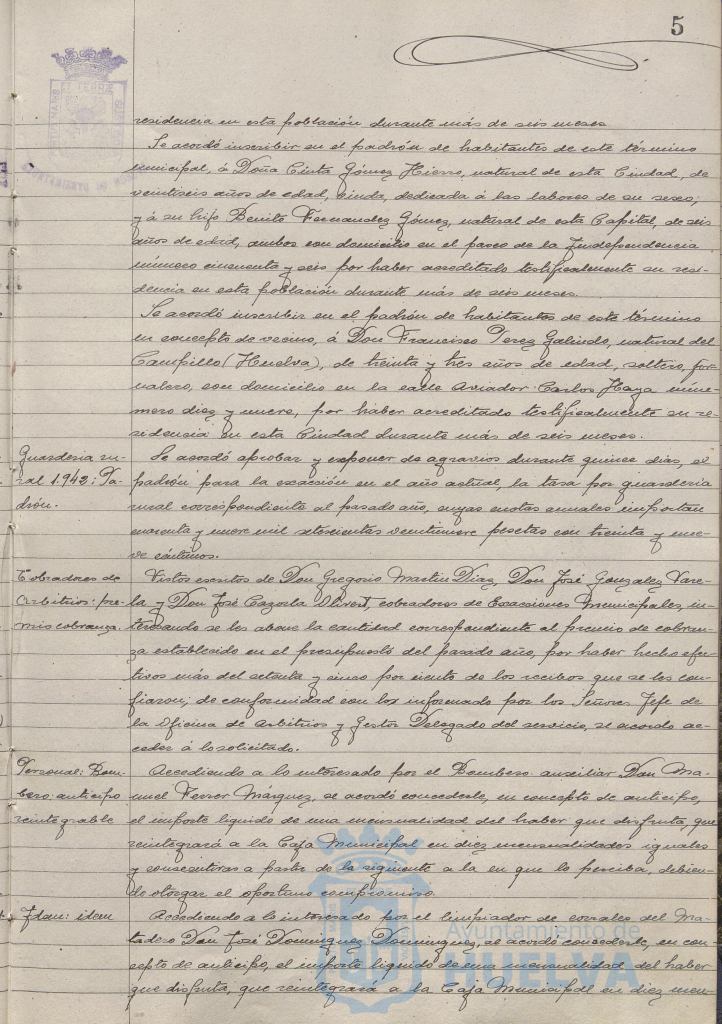 5
residencia en esta población durante más de seis meses
Se acordó inscribir en el padrón de habitantes de este término
municipal, á Doña Cinta Gómez Hierro, natural de esta Ciudad, de
veintiseis años de edad, viuda, dedicada á las labores de su sexo;
y á su hijo Benito Fernandez Gómez, natural de esta Capital, de seis
años de edad, ambos con domicilio en el paseo de la Independencia
número cincuenta y seis por haber acreditado testificalmente su resi-
dencia en esta población durante más de seis meses.
Se acordó inscribir en el padrón de habitantes de este término
en concepto de vecino, á Don Francisco Perez Galindo, natural del
Campillo (Huelva), de treinta y tres años de edad, soltero, jor-
nalero, con domicilio en la calle Aviador Carlos Haya núme-
mero diez y nueve, por haber acreditado testificalmente su re-
sidencia en esta Ciudad durante más de seis meses.
Guarderia ru-
ral 1.942: Pa-
drón.
Se acordó aprobar y exponer de agravios durante quince dias, el
padrón para la exacción en el año actual, la tasa por guarderia
rural correspondiente al pasado año, cuyas cuotas anuales importan
cuarenta y nueve mil setecientas veintinueve pesetas con treinta y nue-
ve céntimos.
Cobradores de
Arbitrios: pre-
mio cobranza.
Vistos escritos de Don Gregorio Martin Diaz, Don José Gonzalez Vare-
la y Don José Cazorla Olivert, cobradores de Exacciones Municipales, in-
teresando se les abone la cantidad correspondiente al premio de cobran-
za establecido en el presupuesto del pasado año, por haber hecho efec-
tivos más del setenta y cinco por ciento de los recibos que se les con-
fiaron; de conformidad con los informado por los Señores Jefe de
la Oficina de Arbitrios y Gestor Delegado del servicio, se acordo ac-
ceder á lo solicitado.
Personal: Bom-
bero: anticipo
reintegrable
Accediendo a lo interesado por el Bombero auxiliar Don Ma-
nuel Ferrer Márquez, se acordó concederle, en concepto de anticipo,
el importe liquido de una mensualidad del haber que disfruta, que
reintegrará a la Caja Municipal en diez mensualidades iguales
y consecutivas a partir de la siguiente a la en que lo perciba, debien-
do otorgar el oportuno compromiso.
Idem: idem
Accediendo a lo interesado por el limpiador de corrales del Ma-
tadero Don José Dominguez Dominguez, se acordó concederle, en con-
cepto de anticipo, el importe liquido de una mensualidad del haber
que disfruta, que reintegrará a la Caja Municipal en diez men-
Ayuntamiento de
HUELVA